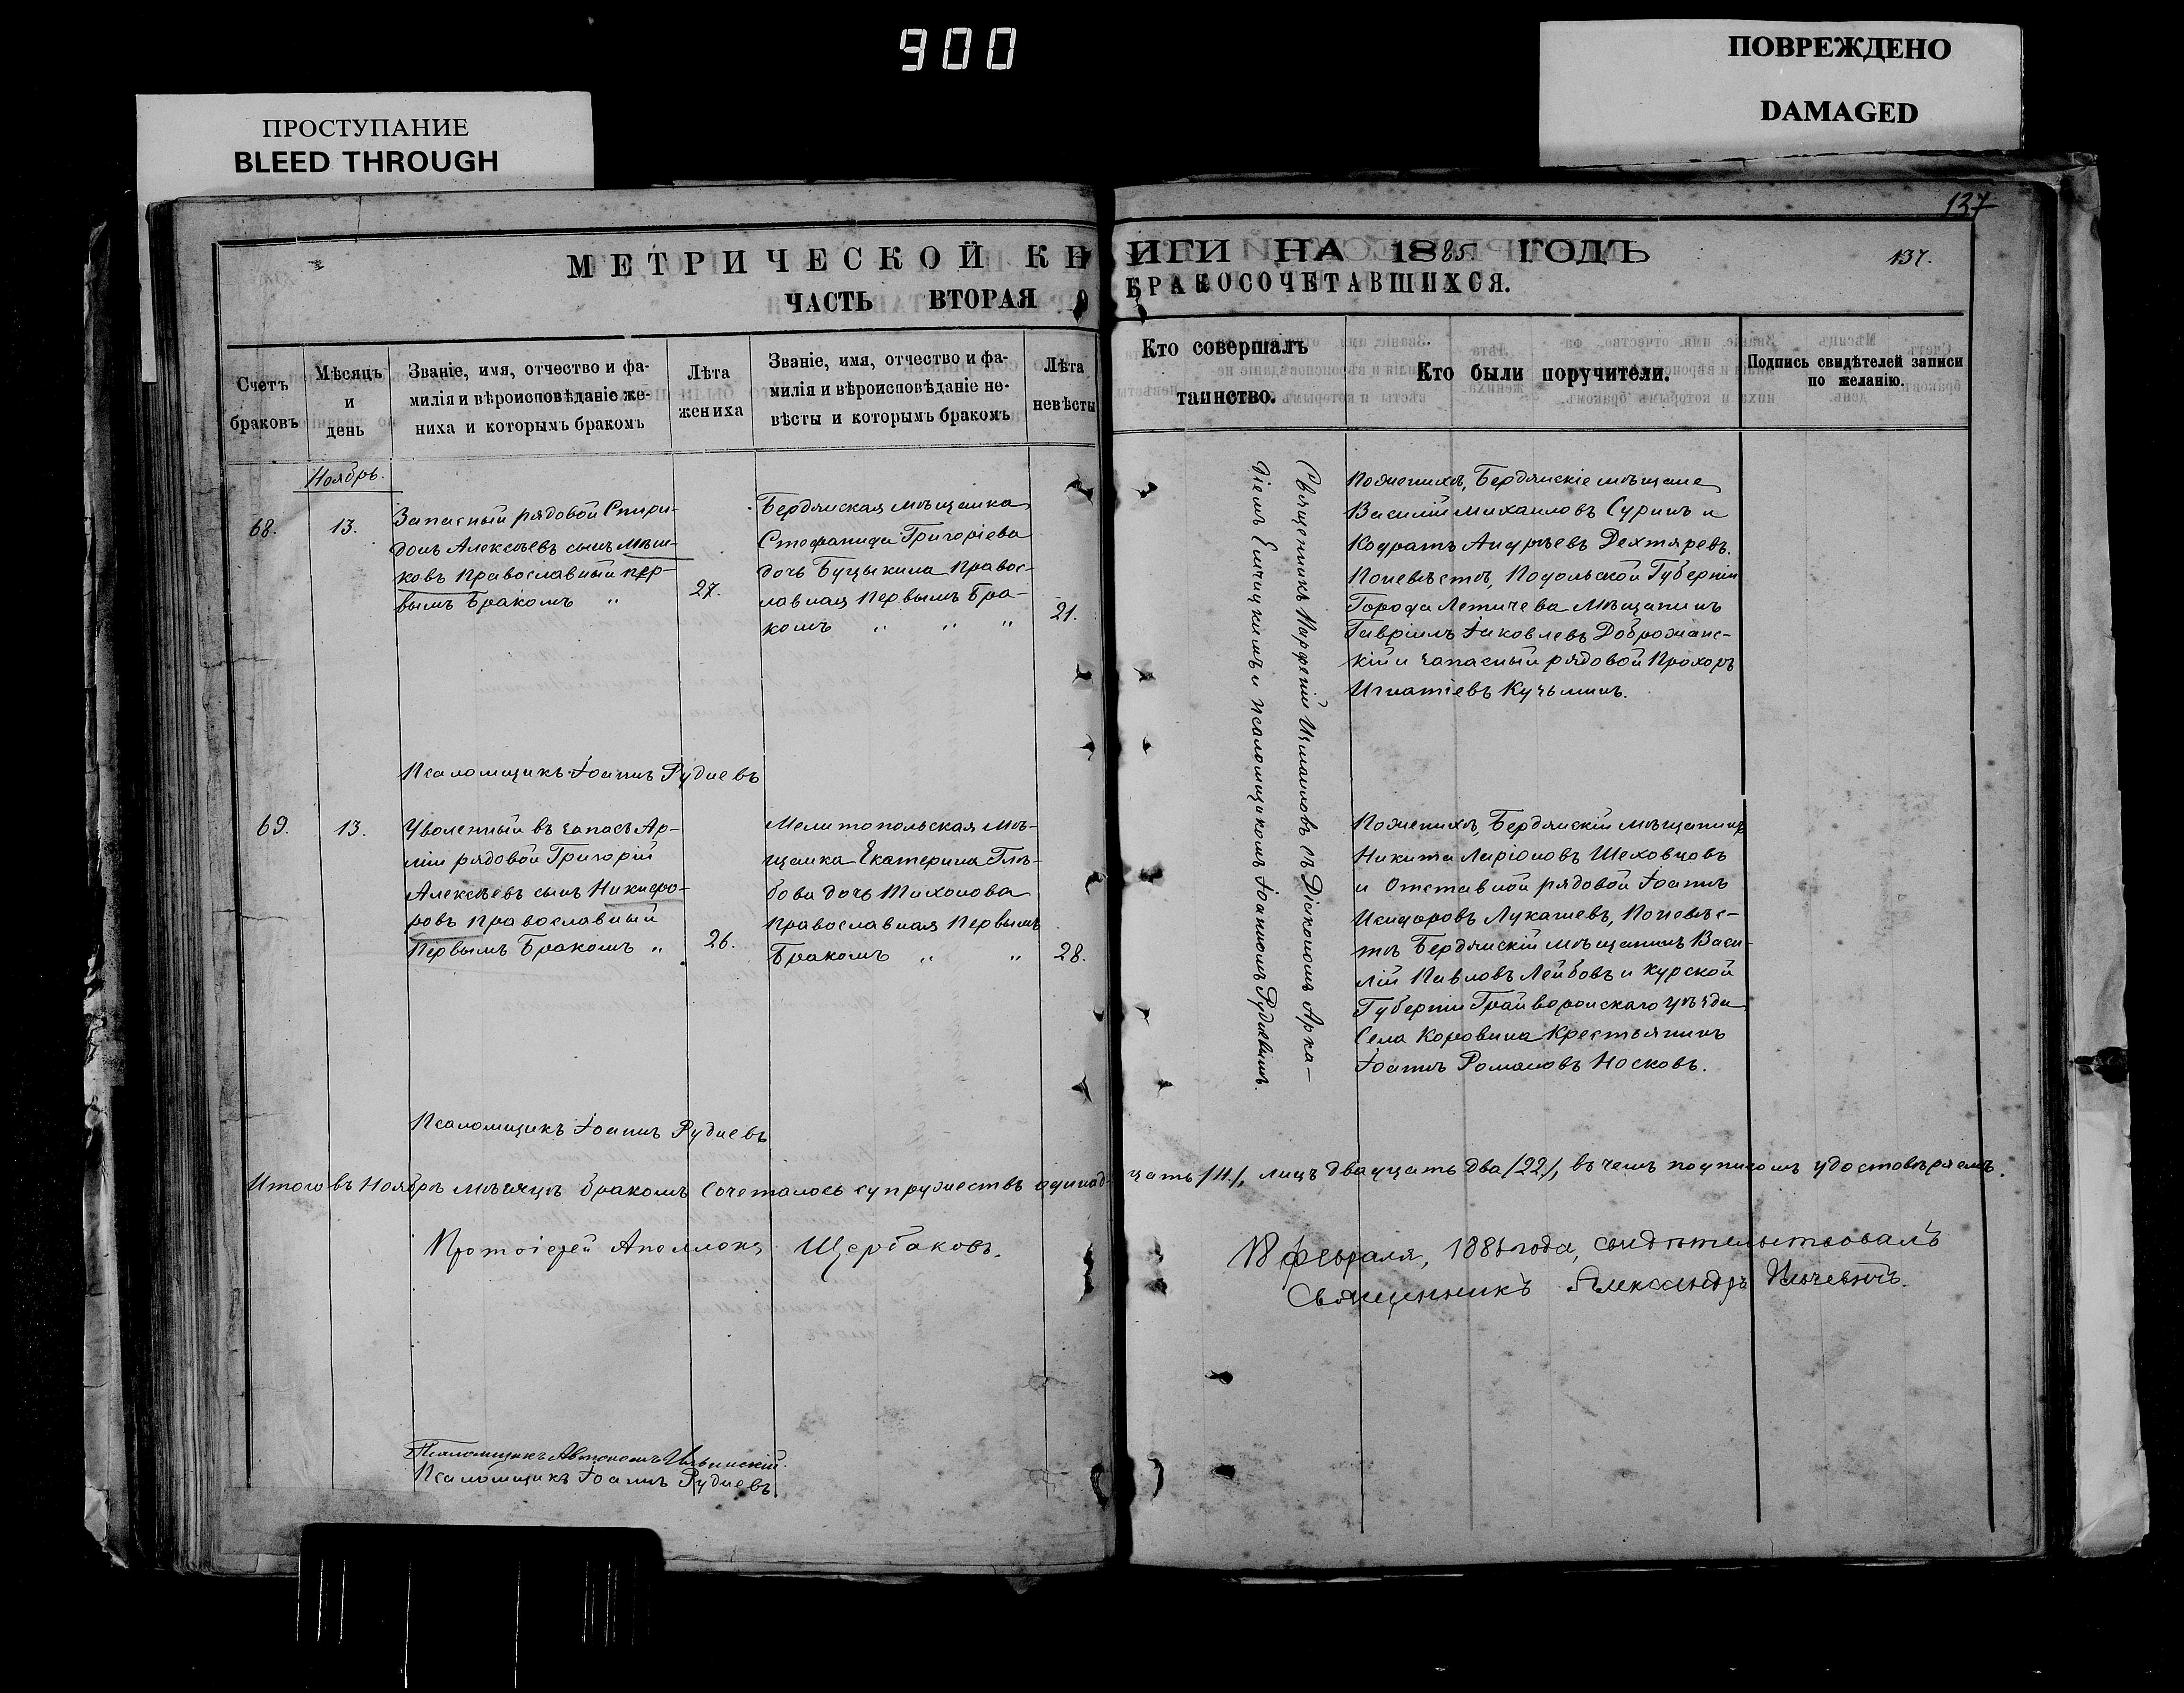 900
ПРОСТУПАНИЕ
BLEED THROUGH
ПОВРЕЖДЕНО
DAMAGED
127
МЕТРИЧЕСКОЙ КНИГИ НА 1885 ГОДЪ
137.
ЧАСТЬ ВТОРАЯ О БРАКОСОЧЕТАВШИХСЯ.
Счетъ
браковъ
Мѣсяцъ
и
день
Званіе, имя, отчество и фа-
милія и вѣроисповѣданіе же-
ниха и которымъ бракомъ
Лѣта
жениха
Званіе, имя, отчество и фа-
милія и вѣроисповѣданіе не-
вѣсты и которымъ бракомъ
Лѣта
невѣсты
Кто совершалъ
таинство.
Кто были поручители.
Подпись свидѣтелей записи
по желанію.
Ноябрь.
68.
13.
Запасный рядовой Спири-
донъ Алексѣевъ сынъ Мѣш-
ковъ православный пер-
вымъ бракомъ "
27.
Бердянская мѣщанка
Стефанида Григоріева
дочь Буцыкина Правос-
лавная Первымъ бра-
комъ " " "
21.
Священникъ Парфеній Измаиловъ съ Діакономъ Арка-
діемъ Еничицкимъ и псаломщикомъ Іоанномъ Рудневымъ.
Пожениху, Бердянскіе мѣщане
Василій Михаиловъ Суринъ и
Кодратъ Андреевъ Дехтяревъ.
Поневѣстѣ, Подольской Губерніи
Города Летичева Мѣщанинъ
Гавріилъ Іаковлевъ Доброжанс-
кій и запасный рядовой Прохоръ
Игнатіевъ Кузьминъ.
Псаломщикъ Іоаннъ Рудневъ
69.
13.
Уволенный въ запасъ Ар-
міи рядовой Григорій
Алексѣевъ сынъ Никифо-
ровъ православный
Первымъ Бракомъ "
26.
Мелитопольская Мѣ-
щанка Екатерина Глѣ-
бова дочь Тихонова
православная Первымъ
Бракомъ " "
28.
Пожениху, Бердянскій мѣщанинъ
Никита Ларіоновъ Шеховцовъ
и Отставной рядовой Іоаннъ
Исидоровъ Лукашевъ, Поневѣс-
тѣ Бердянскій мѣщанинъ Васи-
лій Павловъ Лейбовъ и Курской
Губерніи Грайворонскаго уѣзда
Села Коровина Крестьянинъ
Іоаннъ Романовъ Носковъ.
Псаломщикъ Іоаннъ Рудневъ
Итого въ Ноябрѣ мѣсяцѣ бракомъ сочеталось супружествъ одинад-цать /11/, лицъ двадцать два /22/, въ чемъ подписомъ удостовѣряемъ.
Протоіерей Аполлонъ Щербаковъ.
18 февраля, 1886 года, свидѣтельствовалъ
Священникъ Александръ
Псаломщикъ Автономъ Ильинскій.
Псаломщикъ Іоаннъ Рудневъ.